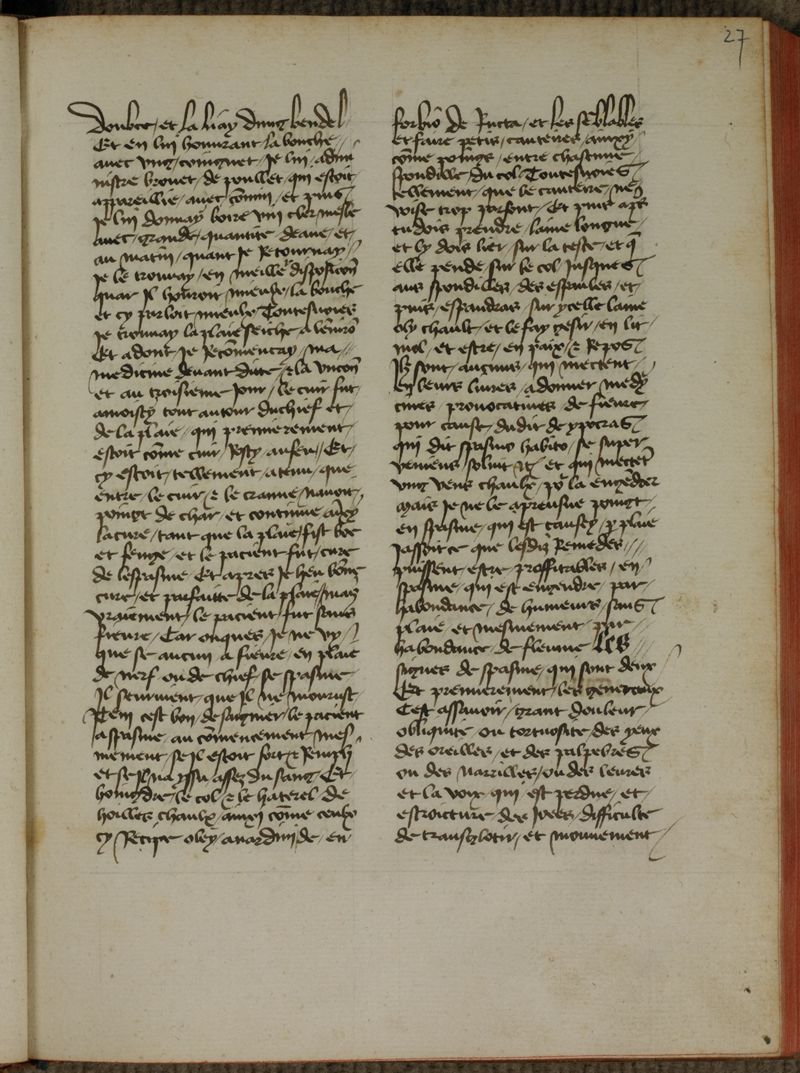 27
doublee / et la liay dung bendel
Et en lui houurant la bouche //
auec vng / coingnet / Je lui / admi
nistre brouet / de poullet / qui estoit
appareillie / auec comin / et puis
Je lui donnay boire vin cler mesle
auec / grande / quantite deaue / et /
au matin / quant Je Retournay /
Je le trouuay / en meilleur disposicon
quar Il houuroit mieulx / la bouche
et cy parloit mieulx Toutesuoies
Je trouuay la plaie seiche a lenuiron
Et adont / Je Recomencay / ma //
medicine deuant ditte / et la
et au troisieme Jour / le cuir fut
amoisty tout autour du chief et /
de la plaie / qui premierement /
estoit come cuir / Rosty au feu // Et /
cy estoit / tellement / atenu / que
entre / le cuir / et le cranne / nauoit /
poingt de char / et continue ainsy
la cure / tant que la plaie / fist boe
et fenge / et le pacient fut / cure
de lespasme Et apres Je heu bonne
cure / et parfaitte de la plaie / mais
vraiement / le pacient / fut sans
fieure / Car onques / Je ne vy /
que se aucun a fieure / en plaie
de nerf ou de chief / se spasme
Il seurment / que Il ne mourust
Item cest bon / de saignier / le pacient
a spasme / au comencement / mes
mement / se il estoit fort et Remply
et se Il na yssu assez du sang / Et /
hoingdre / le col et le haterel de
hoilles chaulx / ainxi come ceulx
cy Recipe oley / anardini de / en
forbio de Rutta / et les semblables
et faire petis / cauteres / ainxy
come poings / entre chascune
spondille / du col Toutesuoies
tellement / que le cautere / ne
voise trop parfont / Et puis aps
tu dois prendre / laine longue
et ly dois lier / sur la teste / et que
elle pende / sur le col Jusques
aus spondilles / des espaules / et /
puis / espandras / sur ycelle laine
oly chault / et le fay gesir / en lit
mol / et estre / en paix / et Repos
Ilz sont / aucuns / qui mectent
en leurs liures / a donner / medy
cines / prouocatiues / de fieure
pour cause / du dit de ypocras
qui dit spasmo habito / se super
veniens / soluit et qui mectent
vng vens chaulx / por la engedrer
Mais Je ne le apreusue poingt /
en spasme / qui est causey / par plaie
Jassoit ce que lesdis Remedes ///
puissent / estre / proffitables / en /
spasme / qui est engendre / par /
habondance / de humeurs / sans
plaie / et mesmement par
habondance / de fleume Les
signes / de spasme / qui sont deux
Et premierement / les generaulx
Cest assauoir / grant douleur /
obliquite / ou tortuosite / des yeux
des oreilles / et des palpebres
ou des narrilles / ou des leures
et la voix / qui est perdue / et /
estroicture des / difficulte
de transglotir / et mouuement